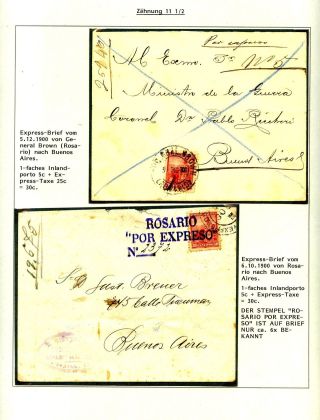 Zähnung 11 1/2
Express-Brief vom
5.12.1900 von Ge-
neral Brown (Rosa-
rio) nach Buenos
Aires.
1-faches Inland-
porto 5c + Ex-
press-Taxe 25c
= 30c.
Por expreso
Al Exmo. Sr.
Ministro de la Guerra
Coronel Dr. Pablo Riccheri
Buenos Aires
ROSARIO
"POR EXPRESO"
Nº 2372
Sr. Gust. Breuer
745 Calle Tucuman
Buenos Aires
Express-Brief vom
6.10.1900 von Rosa-
rio nach Buenos
Aires.
1-faches Inlandporto
5c + Express-Taxe
= 30c.
DER STEMPEL "RO-
SARIO POR EXPRE-
SO" IST AUF BRIEF
NUR ca. 6x BE-
KANNT